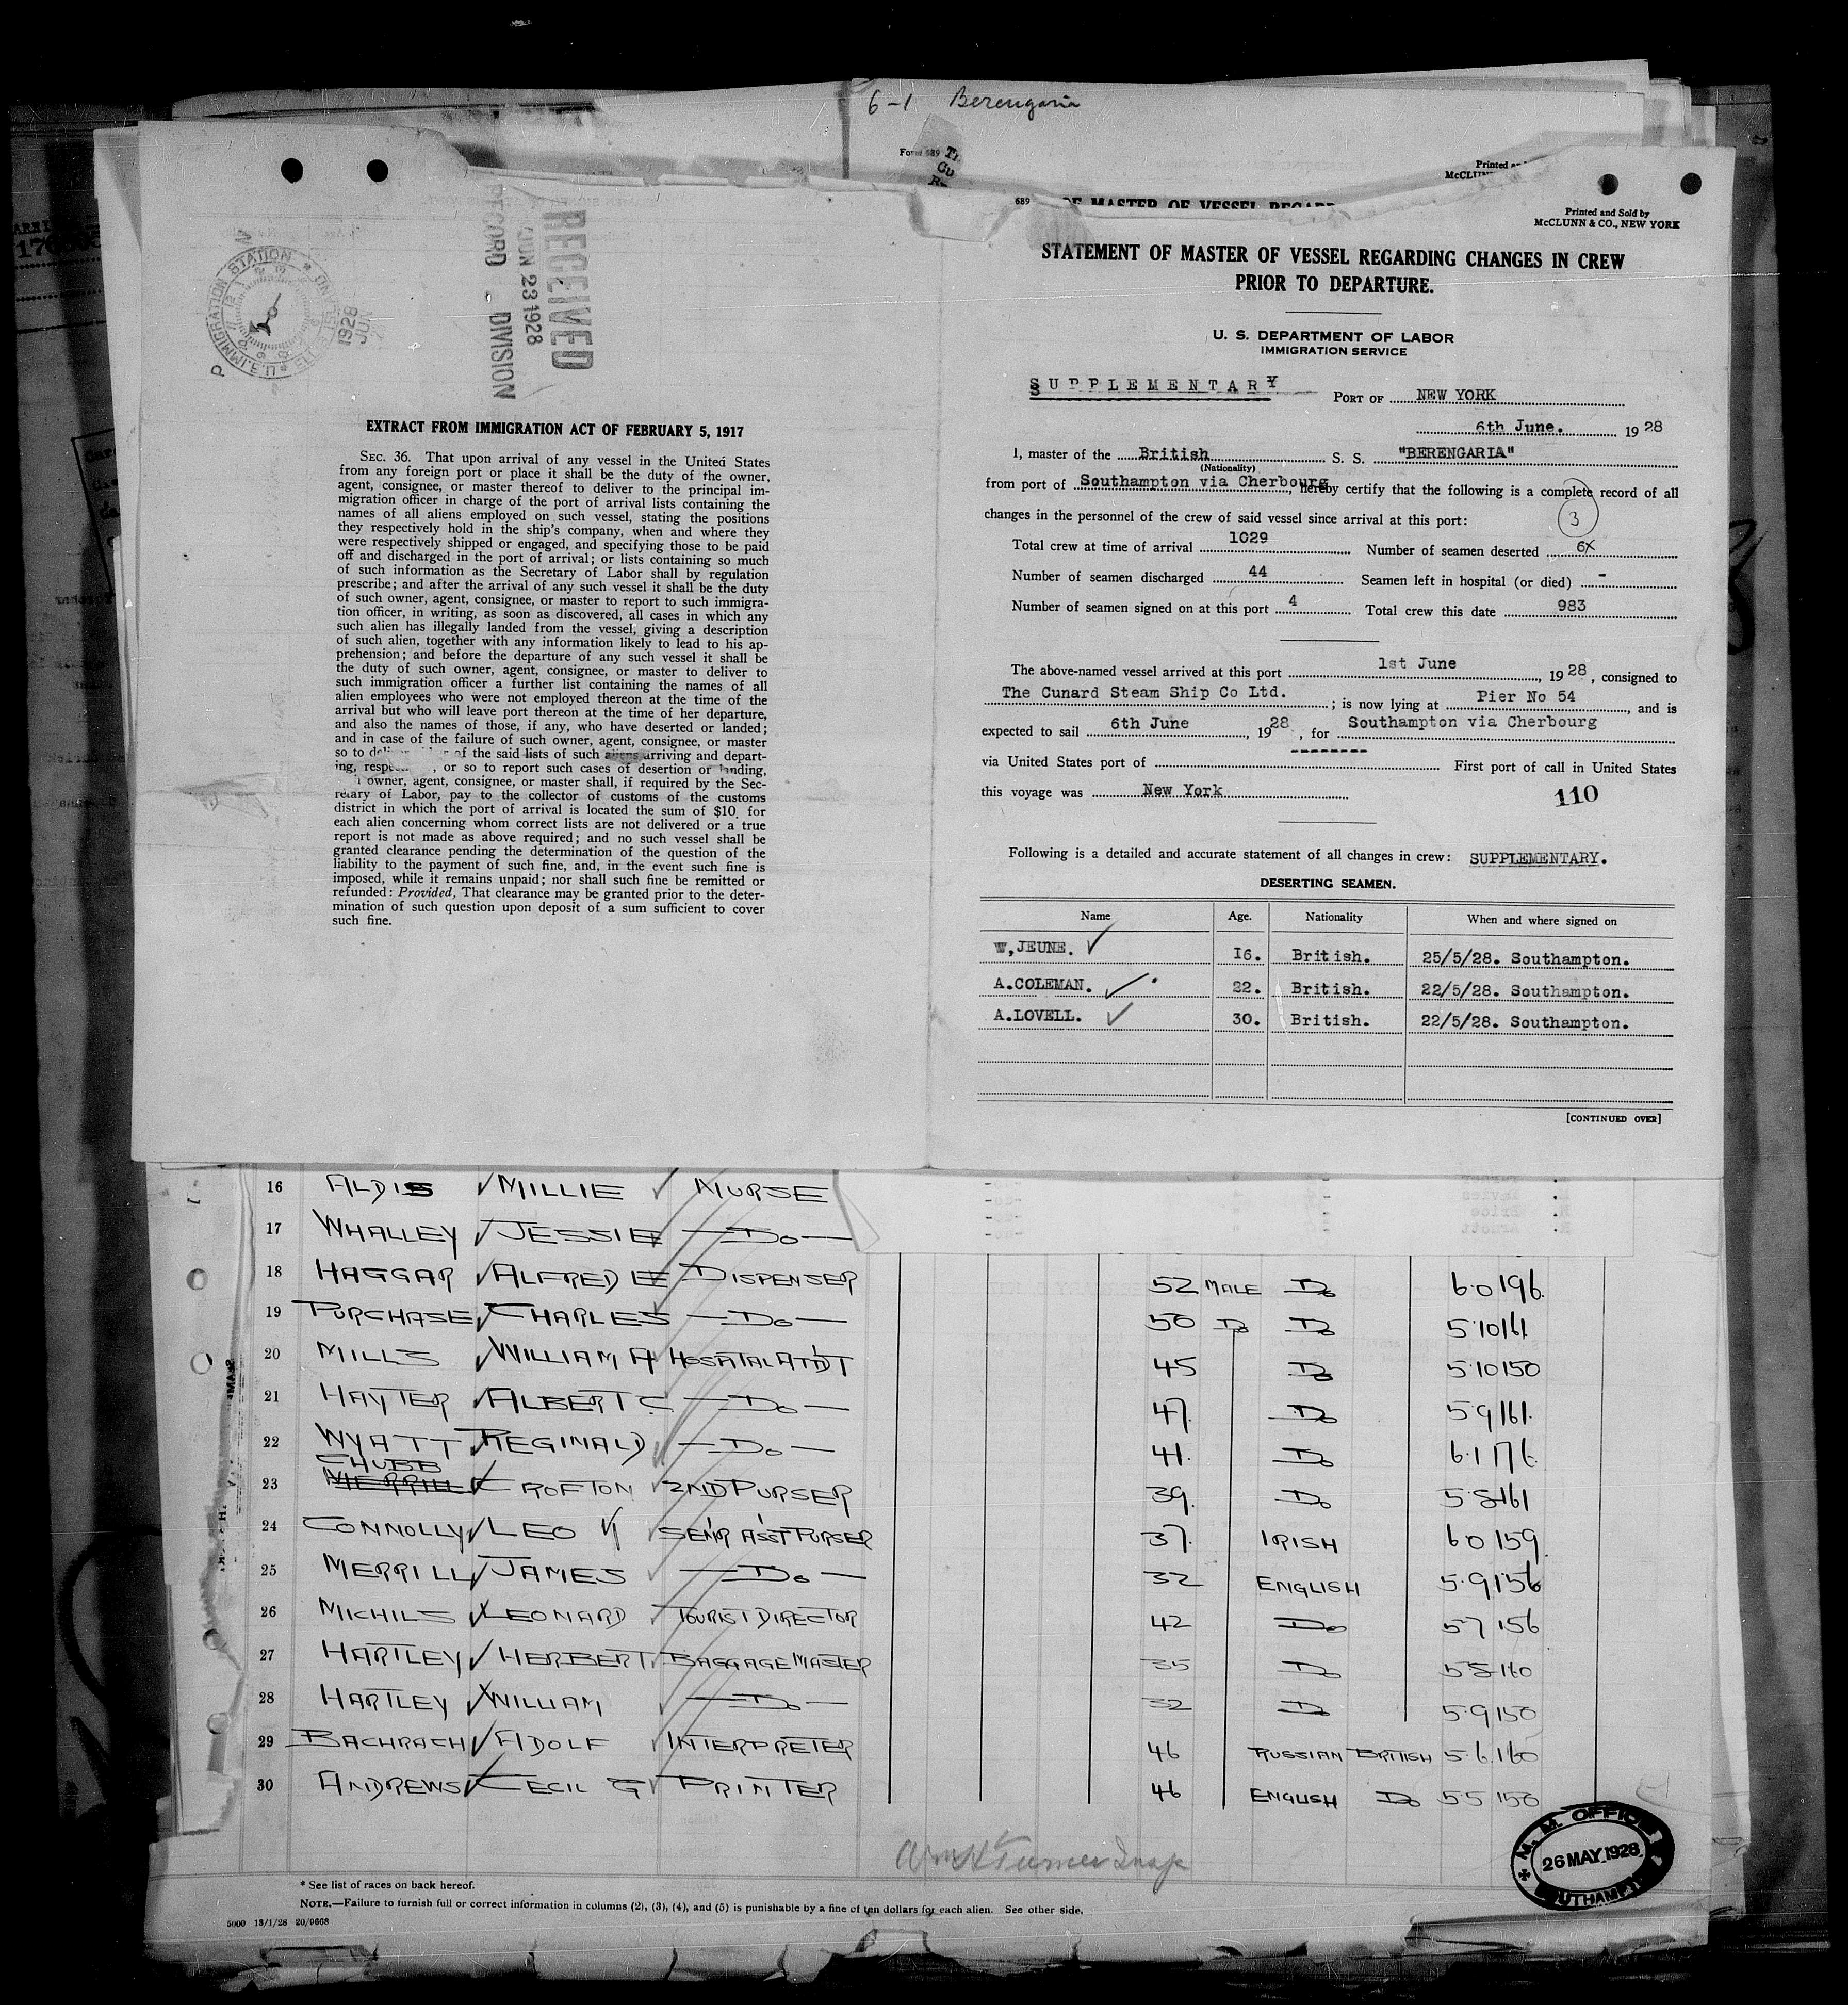 6-1 Berengaria
Form 689
Printed
689
OF MASTER OF VESSEL REGARD
RECEIVED
JUN 23 1928
RECORD DIVISION
IMMIGRATION STATION
1928
JUN
EXTRACT FROM IMMIGRATION ACT OF FEBRUARY 5, 1917
SEC. 36. That upon arrival of any vessel in the United States
from any foreign port or place it shall be the duty of the owner,
agent, consignee, or master thereof to deliver to the principal im-
migration officer in charge of the port of arrival lists containing the
names of all aliens employed on such vessel, stating the positions
they respectively hold in the ship's company, when and where they
were respectively shipped or engaged, and specifying those to be paid
off and discharged in the port of arrival; or lists containing so much
of such information as the Secretary of Labor shall by regulation
prescribe; and after the arrival of any such vessel it shall be the duty
of such owner, agent, consignee, or master to report to such immigra-
tion officer, in writing, as soon as discovered, all cases in which any
such alien has illegally landed from the vessel, giving a description
of such alien, together with any information likely to lead to his ap-
prehension; and before the departure of any such vessel it shall be
the duty of such owner, agent, consignee, or master to deliver to
such immigration officer a further list containing the names of all
alien employees who were not employed thereon at the time of the
arrival but who will leave port thereon at the time of her departure,
and also the names of those, if any, who have deserted or landed;
and in case of the failure of such owner, agent, consignee, or master
so to of the said lists of such aliens arriving and depart-
ing, , or so to report such cases of desertion or landing,
owner, agent, consignee, or master shall, if required by the Sec-
retary of Labor, pay to the collector of customs of the customs
district in which the port of arrival is located the sum of $10 for
each alien concerning whom correct lists are not delivered or a true
report is not made as above required; and no such vessel shall be
granted clearance pending the determination of the question of the
liability to the payment of such fine, and, in the event such fine is
imposed, while it remains unpaid; nor shall such fine be remitted or
refunded: Provided, That clearance may be granted prior to the deter-
mination of such question upon deposit of a sum sufficient to cover
such fine.
Printed and Sold by
McCLUNN & CO., NEW YORK
STATEMENT OF MASTER OF VESSEL REGARDING CHANGES IN CREW
PRIOR TO DEPARTURE.
U. S. DEPARTMENT OF LABOR
IMMIGRATION SERVICE
SUPPLEMENTARY PORT OF NEW YORK
6th June. 1928
I, master of the British S. S. "BERENGARIA"
(Nationality)
from port of Southampton via Cherbourg, hereby certify that the following is a complete record of all
changes in the personnel of the crew of said vessel since arrival at this port: 3
Total crew at time of arrival 1029 Number of seamen deserted 6X
Number of seamen discharged 44 Seamen left in hospital (or died) -
Number of seamen signed on at this port 4 Total crew this date 983
The above-named vessel arrived at this port 1st June, 1928, consigned to
The Cunard Steam Ship Co Ltd.; is now lying at Pier No 54, and is
expected to sail 6th June, 1928, for Southampton via Cherbourg
via United States port of -------- First port of call in United States
this voyage was New York 110
Following is a detailed and accurate statement of all changes in crew: SUPPLEMENTARY.
DESERTING SEAMEN.
Name Age. Nationality When and where signed on
W,JEUNE. 16. British. 25/5/28. Southampton.
A.COLEMAN. 22. British. 22/5/28. Southampton.
A.LOVELL. 30. British. 22/5/28. Southampton.
[CONTINUED OVER]
16 ALDIS MILLIE NURSE
17 WHALLEY JESSIE Do
18 HAGGAR ALFRED E DISPENSER 52 MALE Do 6.0 196
19 PURCHASE CHARLES Do 50 Do Do 5.10 161
20 MILLS WILLIAM A HOSPITAL ATD'T 45 Do 5.10 150
21 HAYTER ALBERT C Do 47 Do 5.9 161
22 WYATT REGINALD Do 41 Do 6.1 176
CHUBB
23 MERRILL CROFTON 2ND PURSER 39 Do 5.8 161
24 CONNOLLY LEO V SEN'R ASS'T PURSER 37 IRISH 6 0 159
25 MERRILL JAMES Do 32 ENGLISH 5.9 156
26 MICHILS LEONARD TOURIST DIRECTOR 42 Do 5.7 156
27 HARTLEY HERBERT BAGGAGE MASTER 35 Do 5.8 160
28 HARTLEY WILLIAM Do 32 Do 5.9 150
29 BACHRACH ADOLF INTERPRETER 46 RUSSIAN BRITISH 5.6 160
30 ANDREWS CECIL G PRINTER 46 ENGLISH Do 5.5 150
Wm H Turner Insp
M. M. OFFICE
26 MAY 1928
SOUTHAMPTON
* See list of races on back hereof.
NOTE.—Failure to furnish full or correct information in columns (2), (3), (4), and (5) is punishable by a fine of ten dollars for each alien. See other side.
5000 13/1/28 20/9668